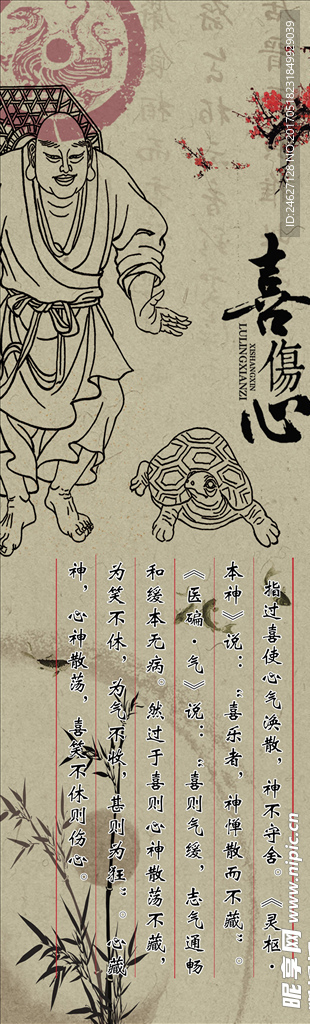 喜傷心
XISHANGXIN
LULINGXIANZI
指过喜使心气涣散，神不守舍。《灵枢·
本神》说：“喜乐者，神惮散而不藏”。
《医碥·气》说：“喜则气缓，志气通畅
和缓本无病。然过于喜则心神散荡不藏，
为笑不休，为气不收，甚则为狂”。心藏
神，心神散荡，喜笑不休则伤心。
ID:24627128 NO:20170518231849929039
昵享网 www.nipic.cn